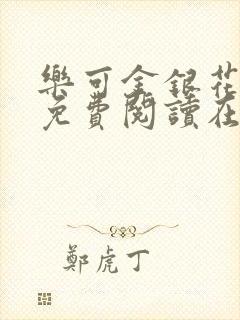 樂可金銀花
免費閱讀在
鄭虎丁